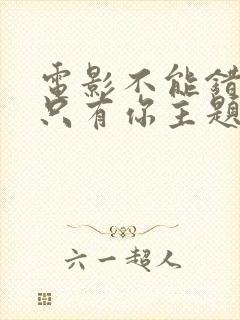 電影不能錯
只有你主題
六一超人